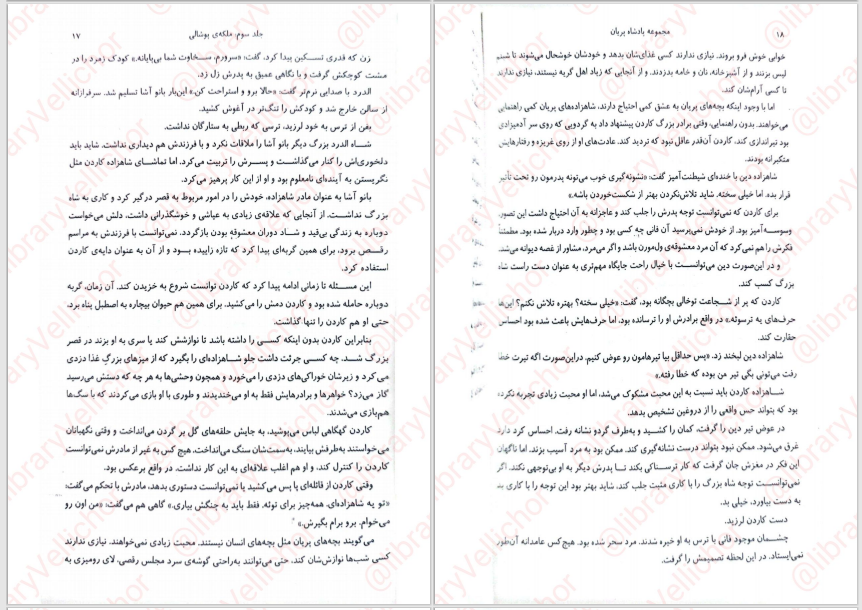 جلد سوم: ملکه‌ی پوشالی ۱۷
زن که قدری تسکین پیدا کرد، گفت: «سرورم، سخاوت شما بی‌پایانه.» کودک زمرد را در
مشت کوچکش گرفت و با نگاهی عمیق به پدرش زل زد.
الدرد با صدایی نرم‌تر گفت: «حالا برو و استراحت کن.» این‌بار بانو آشا تسلیم شد. سرفرازانه
از سالن خارج شد و کودکش را تنگ‌تر در آغوش کشید.
بفن از ترس به خود لرزید، ترسی که ربطی به ستارگان نداشت.
شاه الدرد بزرگ دیگر بانو آشا را ملاقات نکرد و با فرزندش هم دیداری نداشت. شاید باید
دلخوری‌اش را کنار می‌گذاشت و پسرش را تربیت می‌کرد، اما تماشای شاهزاده کاردن مثل
نگریستن به آینده‌ای نامعلوم بود و او از این کار پرهیز می‌کرد.
بانو آشا به عنوان مادر شاهزاده، خودش را در امور مربوط به قصر درگیر کرد و کاری به شاه
بزرگ نداشت. از آنجایی که علاقه‌ی زیادی به عیاشی و خوشگذرانی داشت، دلش می‌خواست
دوباره به زندگی بی‌قید و شاد دوران معشوقه بودن بازگردد. نمی‌توانست با فرزندش به مراسم
رقص برود، برای همین گربه‌ای پیدا کرد که تازه زاییده بود و از آن به عنوان دایه‌ی کاردن
استفاده کرد.
این مسئله تا زمانی ادامه پیدا کرد که کاردن توانست شروع به خزیدن کند. آن زمان، گربه
دوباره حامله شده بود و کاردن دمش را می‌کشید. برای همین هم حیوان بیچاره به اصطبل پناه برد.
حتی او هم کاردن را تنها گذاشت.
بنابراین کاردن بدون اینکه کسی را داشته باشد تا نوازشش کند یا سری به او بزند در قصر
بزرگ شد. چه کسی جرئت داشت جلو شاهزاده‌ای را بگیرد که از میزهای بزرگ غذا دزدی
می‌کرد و زیرشان خوراکی‌های دزدی را می‌خورد و همچون وحشی‌ها به هر چه که دستش می‌رسید
گاز می‌زد؟ خواهرها و برادرهایش فقط به او می‌خندیدند و طوری با او بازی می‌کردند که با سگ‌ها
هم‌بازی می‌شدند.
کاردن گهگاهی لباس می‌پوشید، به جایش حلقه‌های گل بر گردن می‌انداخت و وقتی نگهبانان
می‌خواستند به‌طرفش بیایند، به‌سمت‌شان سنگ می‌انداخت. هیچ کس به غیر از مادرش نمی‌توانست
کاردن را کنترل کند، و او هم اغلب علاقه‌ای به این کار نداشت. در واقع برعکس بود.
وقتی کاردن از قائله‌ای پا پس می‌کشید یا نمی‌توانست دستوری بدهد، مادرش با تحکم می‌گفت:
«تو یه شاهزاده‌ای. همه‌چیز برای توئه. فقط باید به جنگش بیاری.» گاهی هم می‌گفت: «من اون رو
می‌خوام. برو برام بگیرش.»
می‌گویند بچه‌های پریان مثل بچه‌های انسان نیستند. محبت زیادی نمی‌خواهند. نیازی ندارند
کسی شب‌ها نوازش‌شان کند. حتی می‌توانند به‌راحتی گوشه‌ی سرد مجلس رقصی، لای رومیزی به
مجموعه پادشاه پریان ۱۸
خوابی خوش فرو بروند. نیازی ندارند کسی غذای‌شان بدهد و خودشان خوشحال می‌شوند تا شبنم
لیس بزنند و از آشپزخانه، نان و خامه بدزدند. و از آنجایی که زیاد اهل گریه نیستند، نیازی ندارند
تا کسی آرام‌شان کند.
اما با وجود اینکه بچه‌های پریان به عشق کمی احتیاج دارند، شاهزاده‌های پریان کمی راهنمایی
می‌خواهند. بدون راهنمایی، وقتی برادر بزرگ کاردن پیشنهاد داد به گردویی که روی سر آدمیزادی
بود تیراندازی کند، کاردن آن‌قدر عاقل نبود که تردید کند. عادت‌های او از روی غریزه و رفتارهایش
متکبرانه بودند.
شاهزاده دین با خنده‌ای شیطنت‌آمیز گفت: «نشونه‌گیری خوب می‌تونه پدرمون رو تحت تأثیر
قرار بده. اما خیلی سخته. شاید تلاش‌نکردن بهتر از شکست‌خوردن باشه.»
برای کاردن که نمی‌توانست توجه پدرش را جلب کند و عاجزانه به آن احتیاج داشت این تصور
وسوسه‌آمیز بود. از خودش نمی‌پرسید آن فانی چه کسی بود و چطور وارد دربار شده بود. مطمئناً
فکرش را هم نمی‌کرد که آن مرد معشوقه‌ی ول‌مورن باشد و اگر می‌مرد، مشاور از غصه دیوانه می‌شد
و در این‌صورت دین می‌توانست با خیال راحت جایگاه مهم‌تری به عنوان دست راست شاه
بزرگ کسب کند.
کاردن که پر از شجاعت توخالی بچگانه بود، گفت: «خیلی سخته؟ بهتره تلاش نکنم؟ این‌ها
حرف‌های یه ترسوئه.» در واقع برادرش او را ترسانده بود، اما حرف‌هایش باعث شده بود احساس
حقارت کند.
شاهزاده دین لبخند زد. «پس حداقل بیا تیرهامون رو عوض کنیم. دراین‌صورت اگه تیرت خطا
رفت می‌تونی بگی تیر من بوده که خطا رفته.»
شاهزاده کاردن باید نسبت به این محبت مشکوک می‌شد، اما او محبت زیادی تجربه نکرده
بود که بتواند حس واقعی را از دروغین تشخیص بدهد.
در عوض تیر دین را گرفت، کمان را کشید و به‌طرف گردو نشانه رفت. احساس کرد دارد
غرق می‌شود. ممکن نبود بتواند درست نشانه‌گیری کند. ممکن بود به مرد آسیب بزند. اما ناگهان
این فکر در مغزش جان گرفت که کار ترسناکی بکند تا پدرش دیگر به او بی‌توجهی نکند. اگر
نمی‌توانست توجه شاه بزرگ را با کاری مثبت جلب کند، شاید بهتر بود این توجه را با کاری بد
به دست بیاورد، خیلی بد.
دست کاردن لرزید.
چشمان موجود فانی با ترس به او خیره شدند. مرد سحر شده بود. هیچ‌کس عامدانه آن‌طور
نمی‌ایستاد. در این لحظه تصمیمش را گرفت.
@libraryVellichor